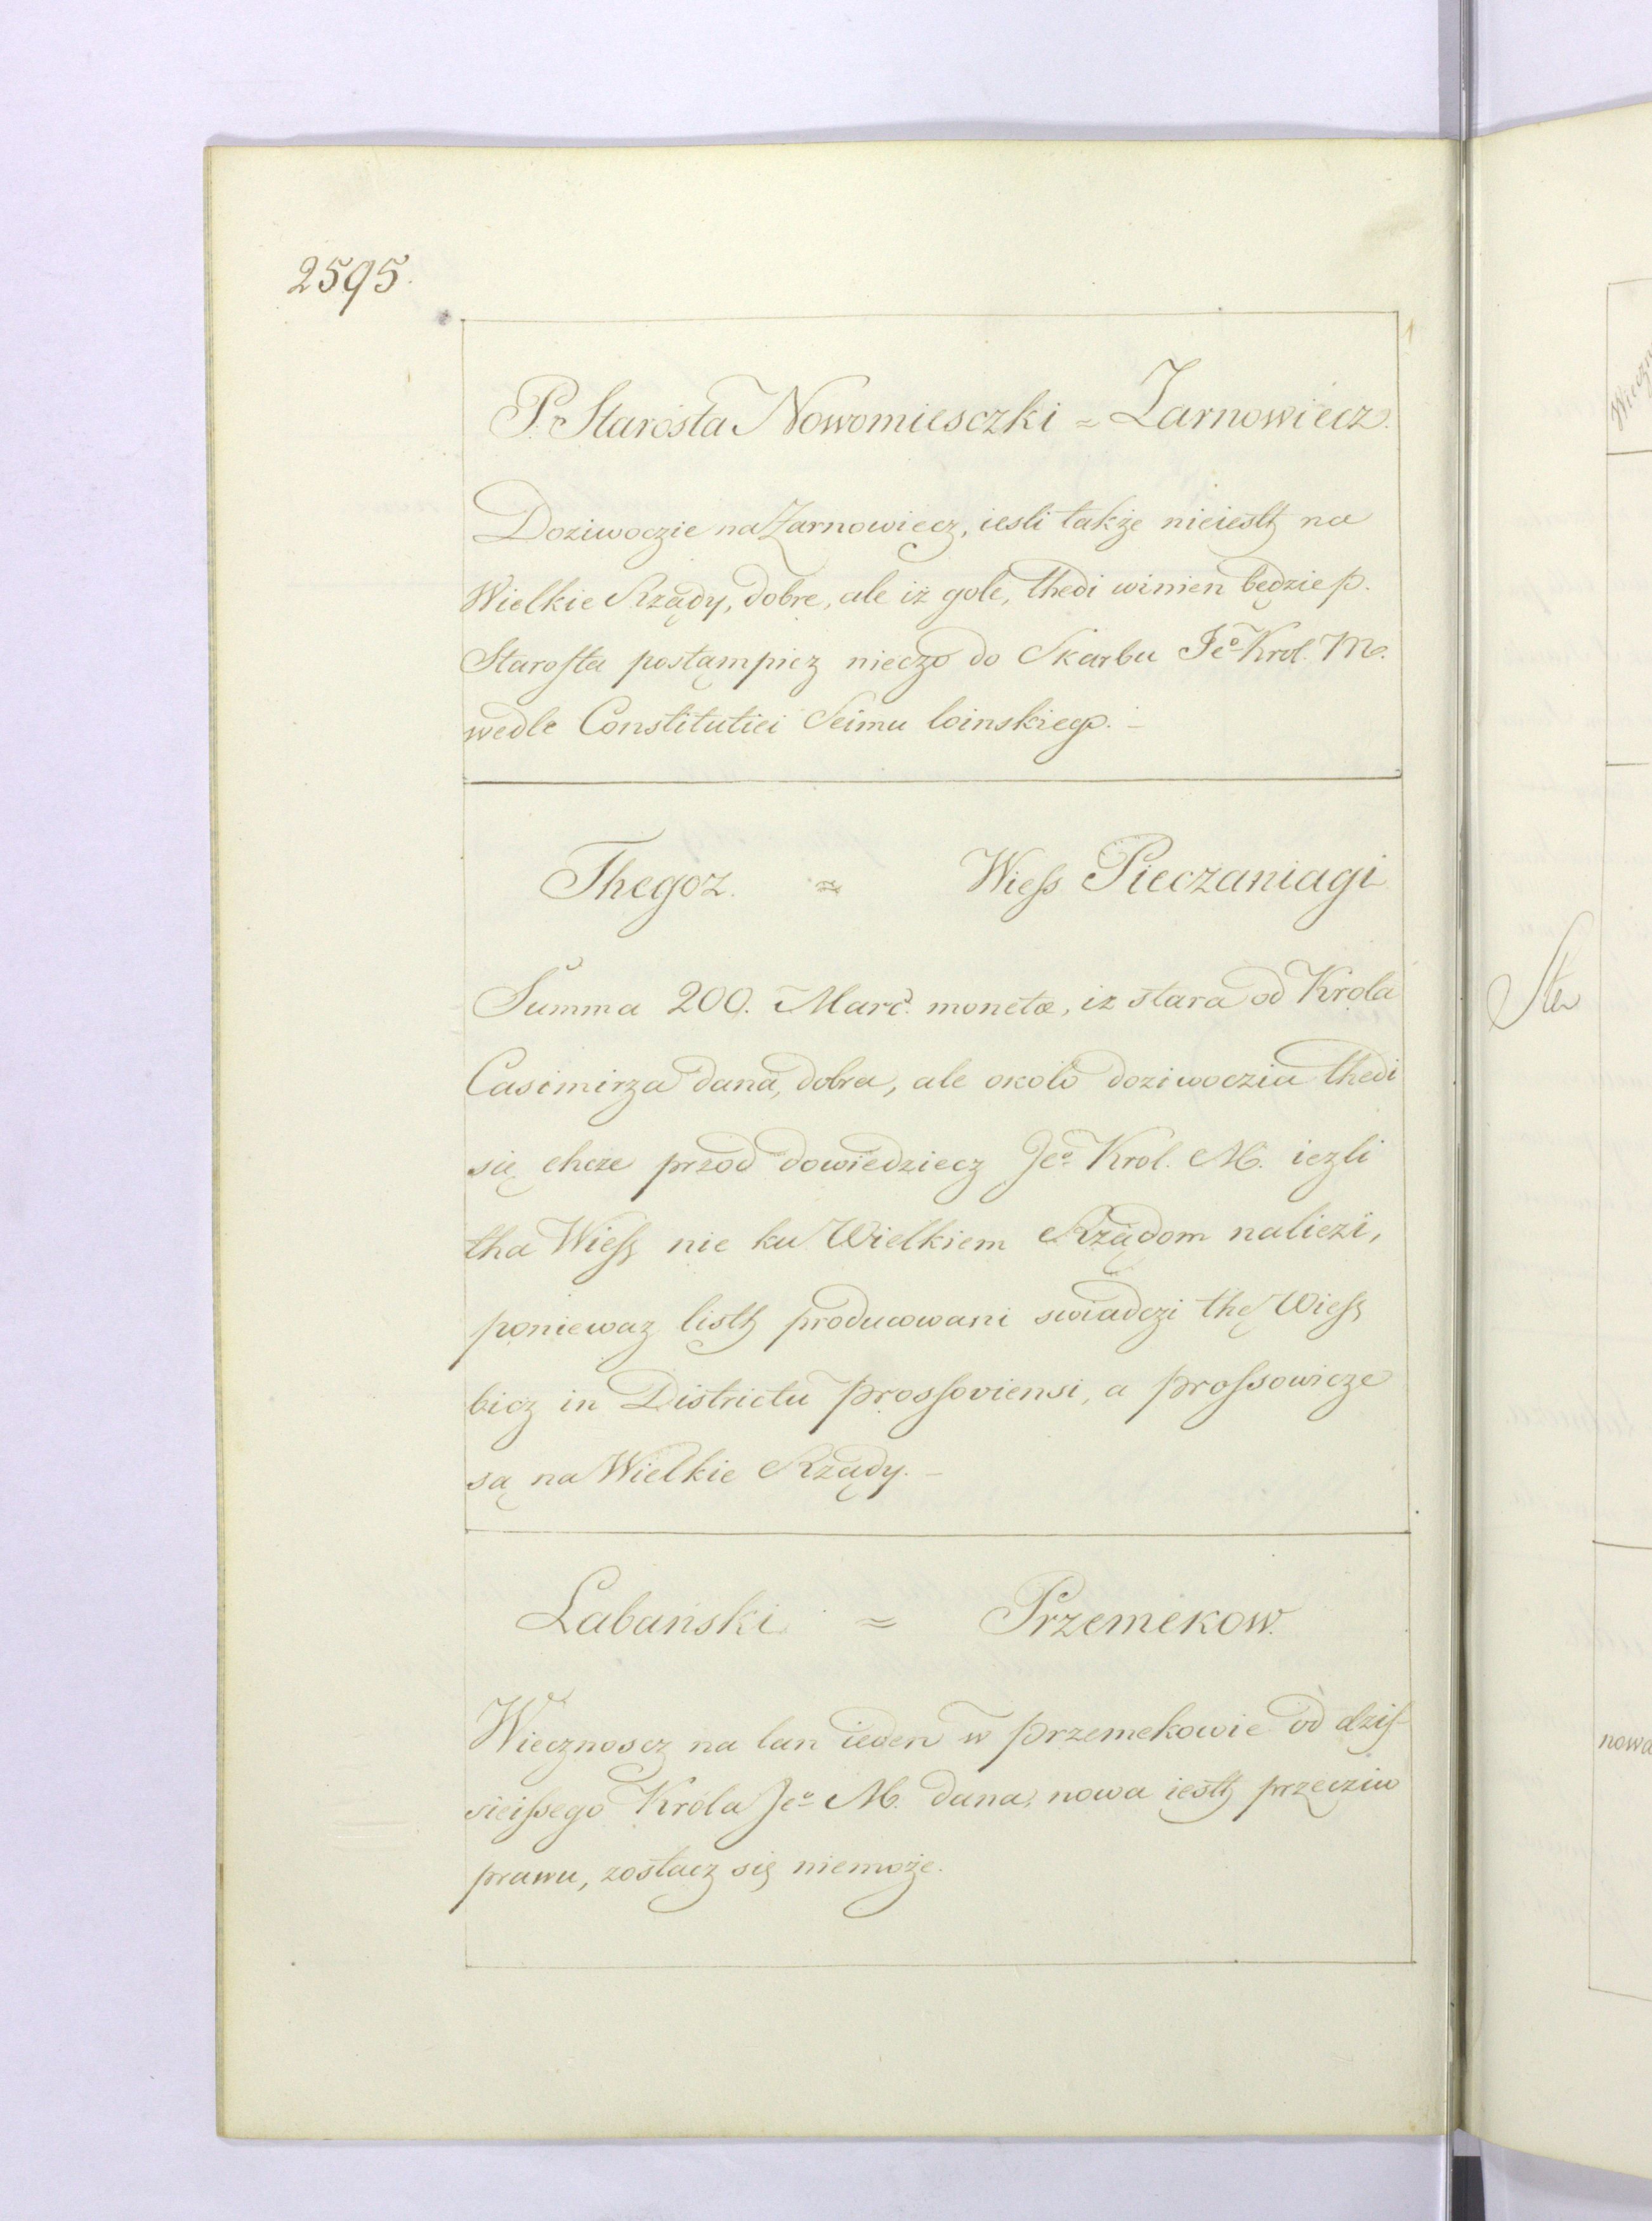 2595.
P. Starosta Nowomiesczki = Zarnowiecz.
Doziwoczie na Zarnowiecz, iesli także nieiesth na
Wielkie Rządy, dobre, ale iż gołe, thedi winien będzie p.
Starosta postąmpicz nieczo do Skarbu Jeo Krol. M.
wedle Constitutiei Seimu loinskiego. –
Thegoz. = Wiess Pieczaniagi
Summa 200. Marc. monetæ, iz stara od Krola
Casimirza dana, dobra, ale około doziwoczia thedi
się chcze przod dowiedziecz Jeo Krol. M. iezli
tha Wiess nie ku Wielkiem Rządom naliezi,
poniewaz listh producowani swiadczi thę Wiess
bicz in Districtu prossoviensi, a prossowicze
są na Wielkie Rządy. –
Labański = Przemekow.
Wiecznoscz na lan ieden w przemekowie od dzis-
sieissego Króla Jeo M. dana, nowa iesth przecziw
prawu, zostacz się niemoże.
nowa